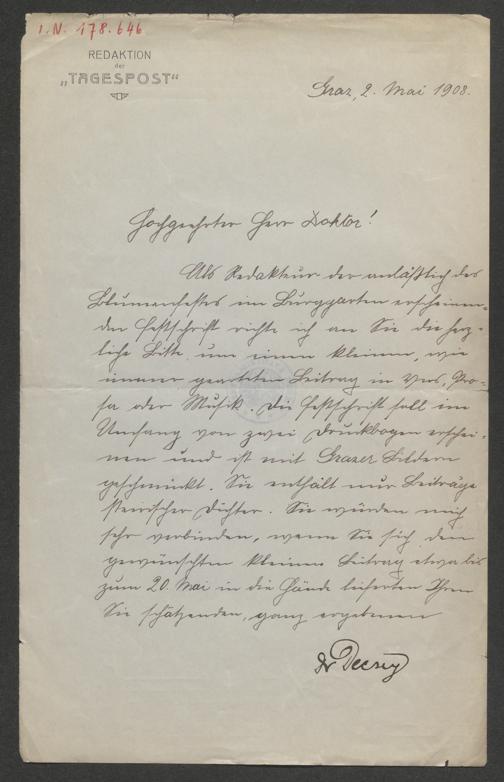 I.N. 178.646
REDAKTION
der
„TAGESPOST“
Graz, 2. Mai 1908.
Hochgeehrter Herr Doktor!
Als Redakteur der anläßlich des
Blumenfestes im Burggarten erscheinen-
den Festschrift richte ich an Sie die herz-
liche Bitte um einen kleinen, wie
immer gearteten Beitrag in Vers, Pro-
sa oder Musik. Die Festschrift soll im
Umfang von zwei Druckbogen erschei-
nen und ist mit Grazer Bildern
geschmückt. Sie enthält nur Beiträge
steirischer Dichter. Sie würden mich
sehr verbinden, wenn Sie sich den
gewünschten kleinen Beitrag etwa bis
zum 20. Mai in die Hände lieferten Ihrem
Sie schätzenden, ganz ergebenen
Dr Decsey